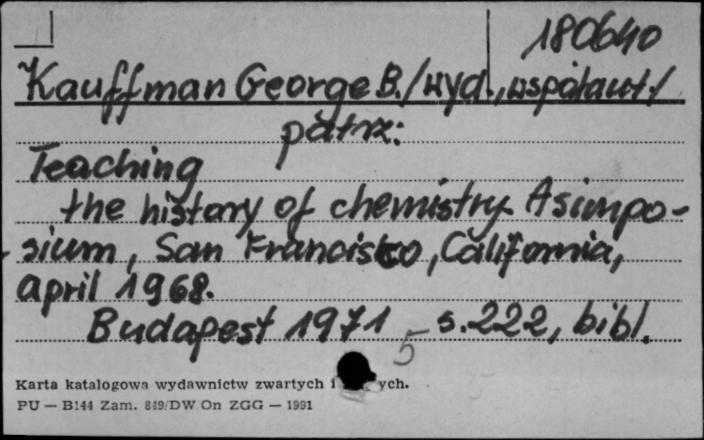 180640
Kauffman George B. /wyd., współaut./
patrz:
Teaching
the history of chemistry. A simpo-
sium, San Francisco, California,
april 1968.
Budapest 1971 s. 222, bibl.
5
Karta katalogowa wydawnictw zwartych i ych.
PU — B144 Zam. 849/DW/On ZGG — 1991